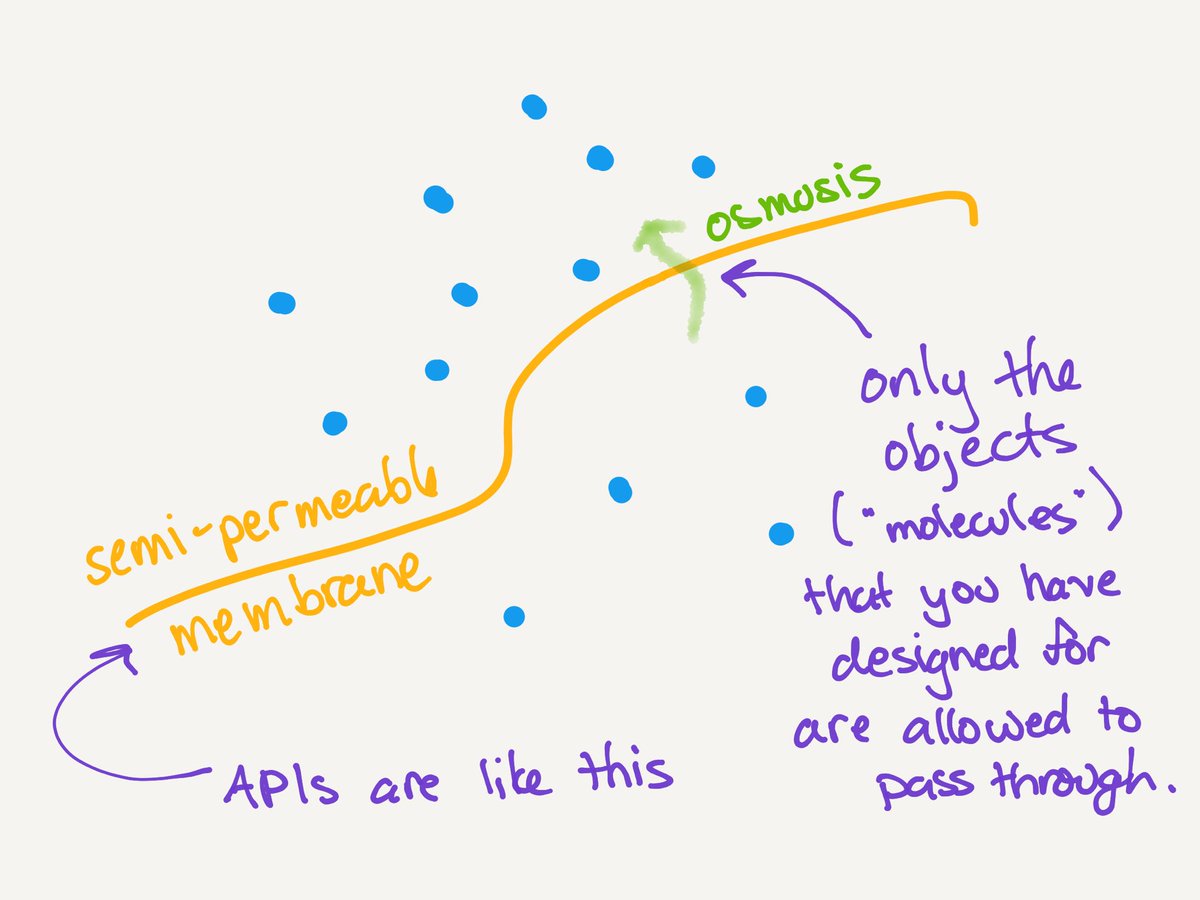 osmosis
semi-permeable
membrane
only the
objects
("molecules")
that you have
designed for
are allowed to
pass through.
APIs are like this